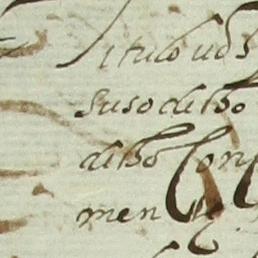 titulo
susodicho
dicho Con
men